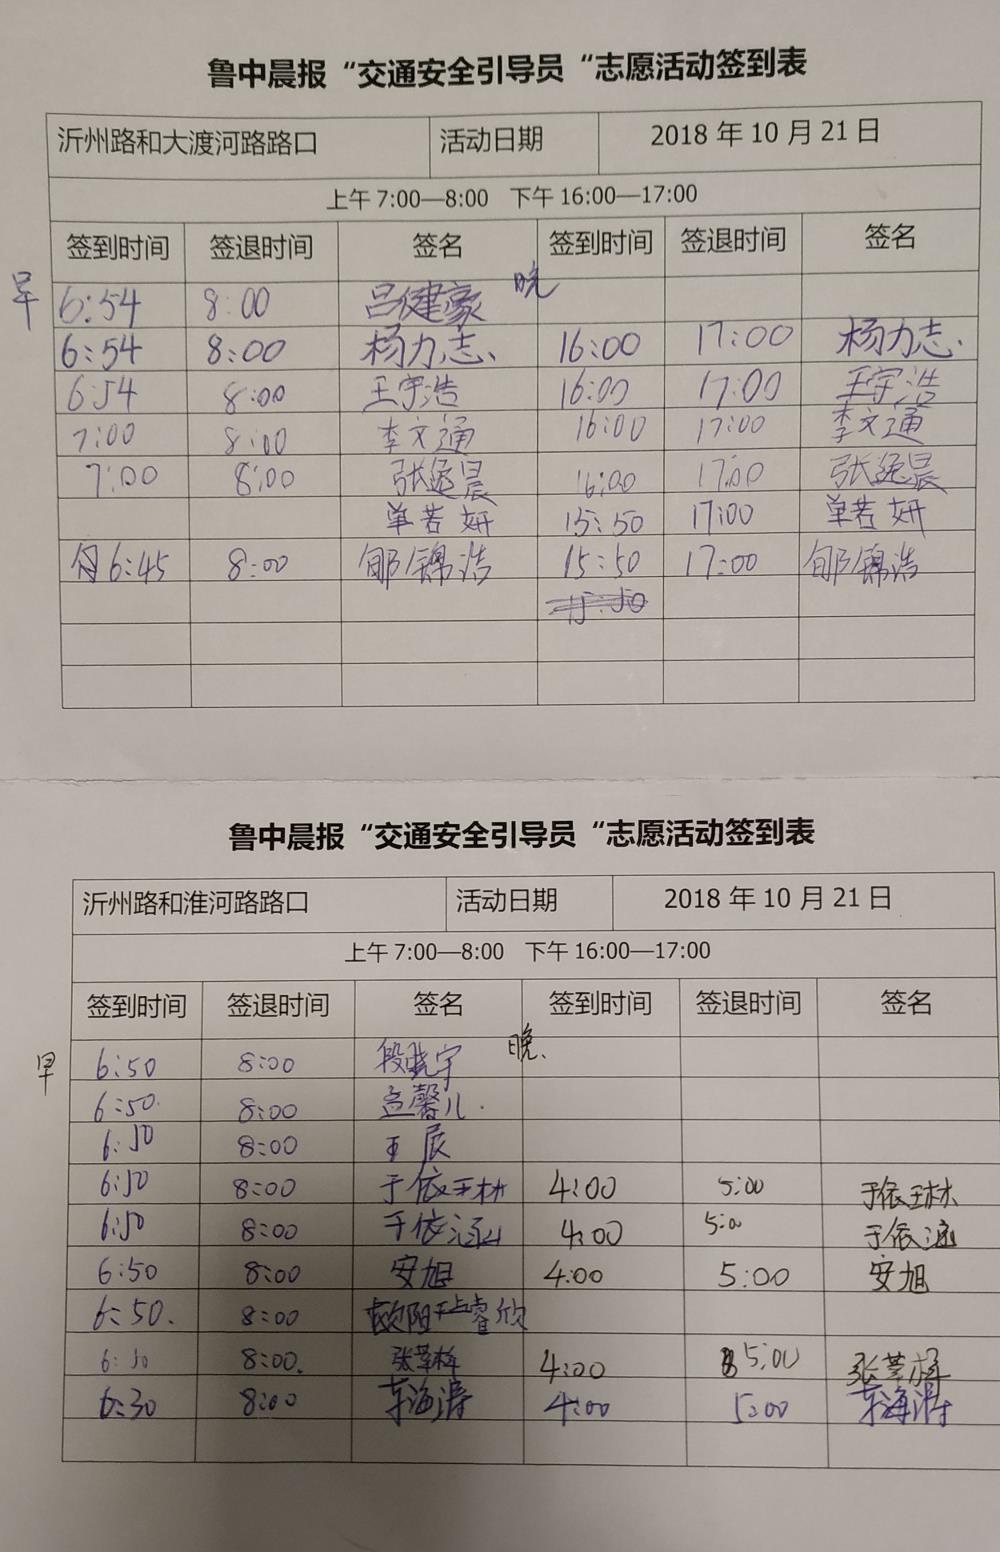 鲁中晨报“交通安全引导员“志愿活动签到表
沂州路和大渡河路路口 活动日期 2018 年 10 月 21 日
上午 7:00—8:00 下午 16:00—17:00
签到时间 签退时间 签名 签到时间 签退时间 签名
早 6:54 8:00 吕健豪 晚
6:54 8:00 杨力志、 16:00 17:00 杨力志.
6:54 8:00 王宇浩 16:00 17:00 王宇浩
7:00 8:00 李文通 16:00 17:00 李文通
7:00 8:00 张逸晨 16:00 17:00 张逸晨
单若妍 15:50 17:00 单若妍
6:45 8:00 郇锦浩 15:50 17:00 郇锦浩
鲁中晨报“交通安全引导员“志愿活动签到表
沂州路和淮河路路口 活动日期 2018 年 10 月 21 日
上午 7:00—8:00 下午 16:00—17:00
签到时间 签退时间 签名 签到时间 签退时间 签名
早 6:50 8:00 段晓宇 晚.
6:50. 8:00 馨儿.
6:50 8:00 王辰
6:50 8:00 于依琳 4:00 5:00 于依琳
6:50 8:00 于依涵 4:00 5:00 于依涵
6:50 8:00 安旭 4:00 5:00 安旭
6:50. 8:00 欧阳睿欣
6:50 8:00. 张 4:00 5:00 张
6:30 8:00 海涛 4:00 5:00 海涛